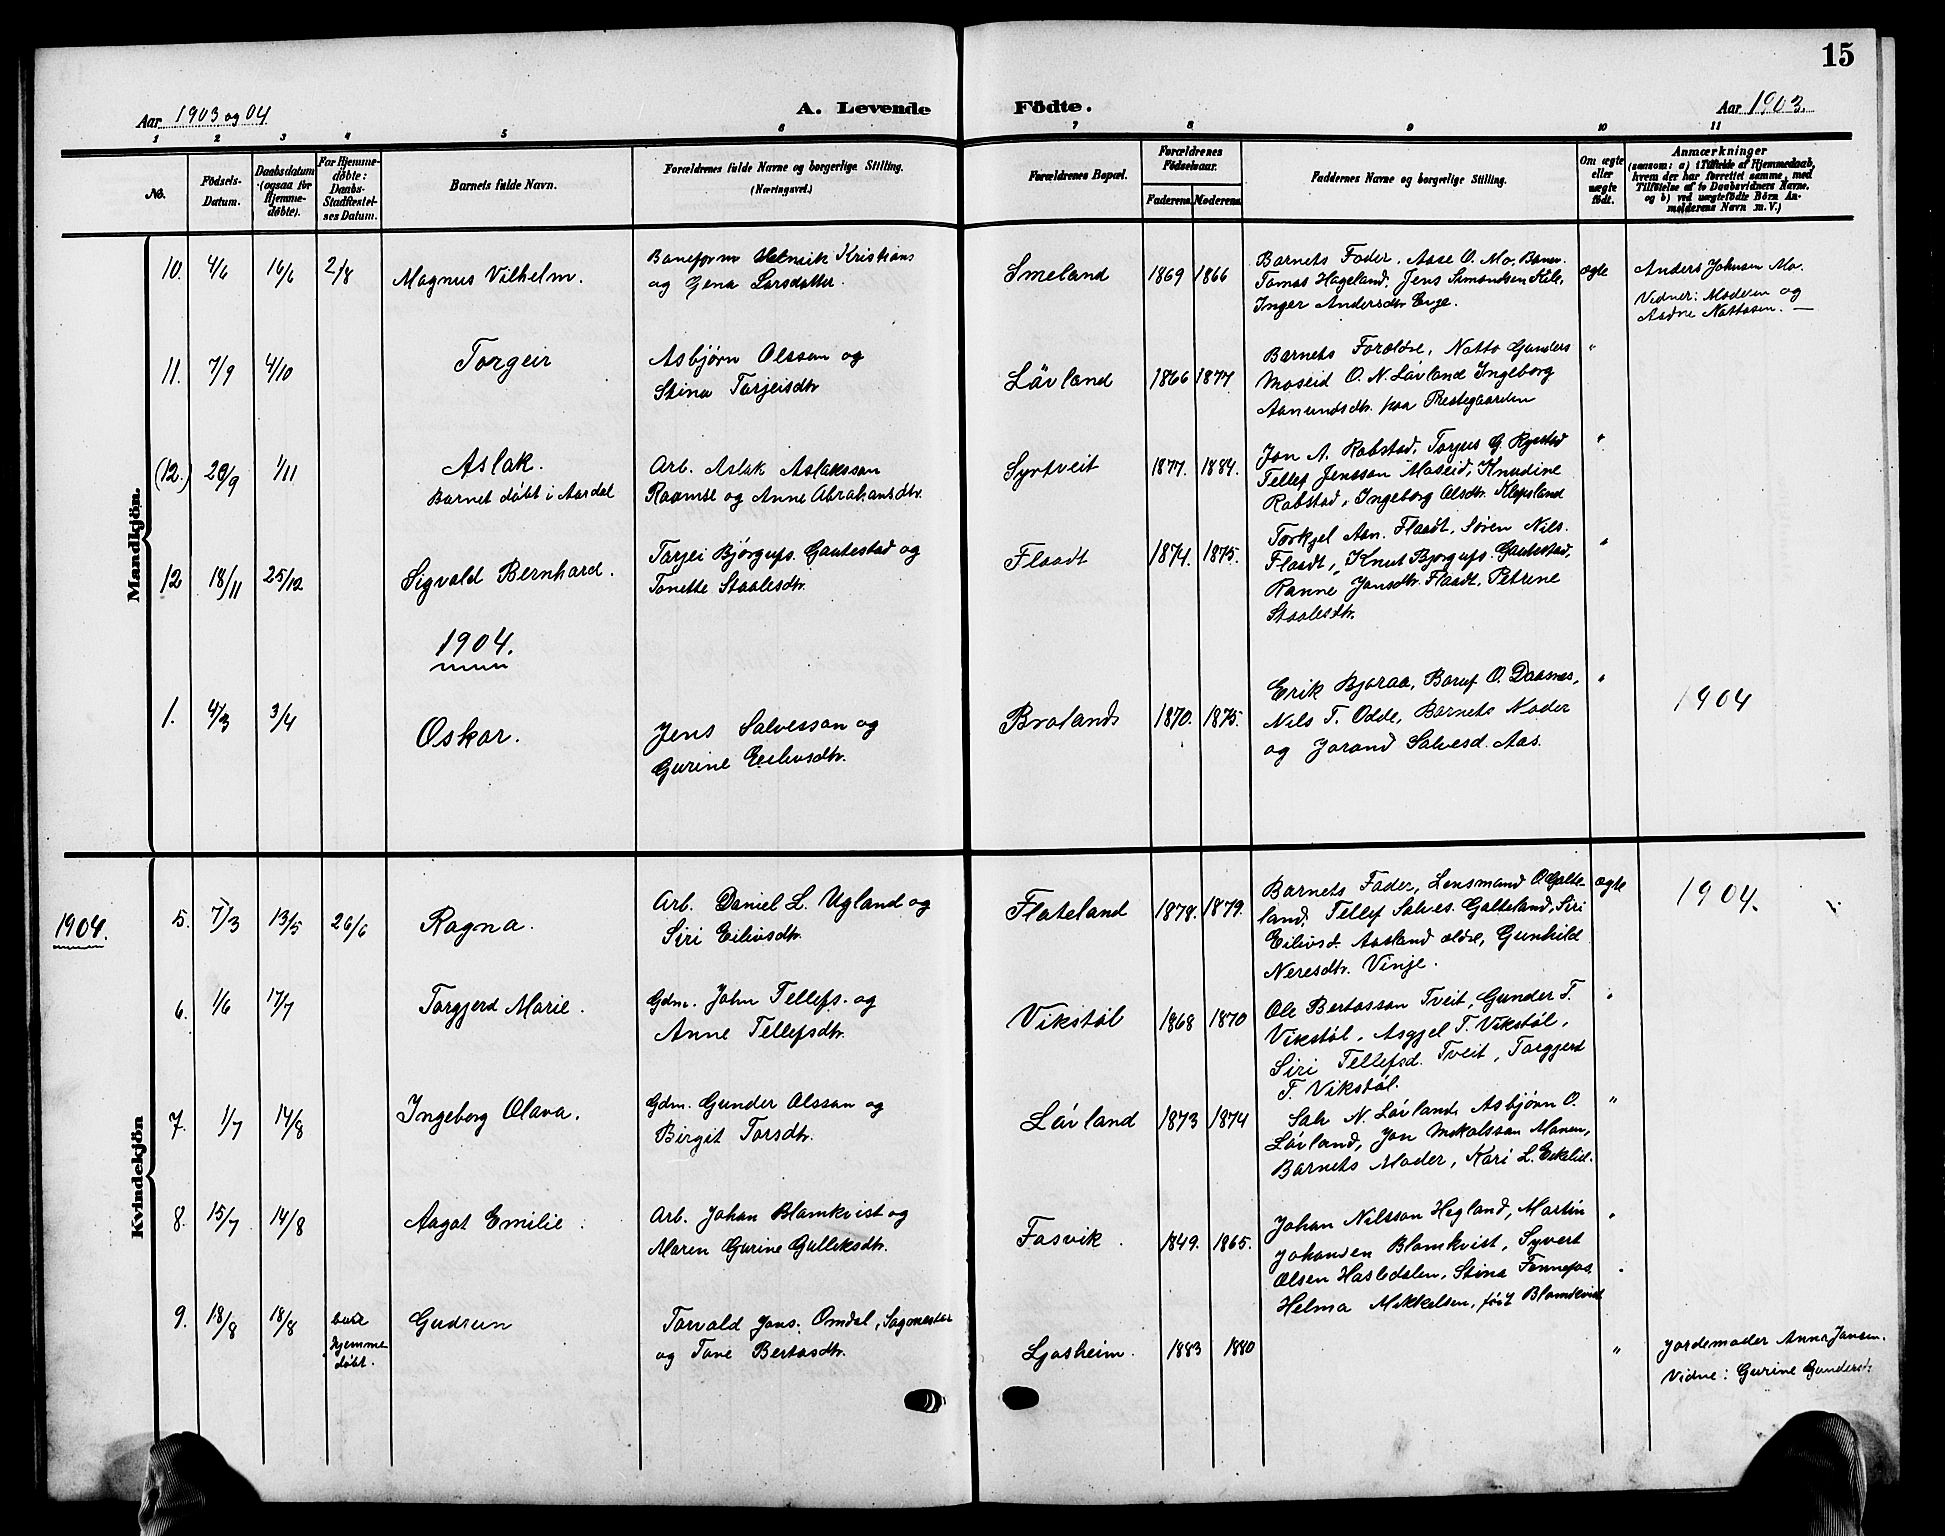 15
Aar 1903 og 04
A. Levende Födte.
Aar 1903.
1 2 3 4 5 6 7 8 9 10 11
No.
Födsels-
Datum.
Daabsdatum
(ogsaa for
Hjemme-
döbte).
For Hjemme-
döbte:
Daabs-
Stadfæstel-
ses Datum.
Barnets fulde Navn.
Forældrenes fulde Navne og borgerlige Stilling.
(Næringsvei.)
Forældrenes Bopæl.
Forældrenes
Födselsaar.
Faderens Moderens
Faddernes Navne og borgerlige Stilling.
Om ægte
eller
uægte
födt.
Anmærkninger
(saasom: a) i Tilfælde af Hjemmedaab,
hvem der har forrettet samme, med
Tilföielse af to Daabsvidners Navne,
og b) ved uægtefödte Börn An-
melderens Navn m. V.)
Mandkjön.
10. 4/6 16/6 2/8 Magnus Vilhelm.
Baneform Henrik Kristians
og Gena Larsdatter.
Smeland 1869 1866
Barnets Fader, Aase O. Mo,
Tomas Hageland, Jens Simondsen Kile,
Inger Andersdtr Evje.
ægte
Anders Johnsen Mo.
Vidner: Moderen og
Aadne Nottosen. —
11. 7/9 4/10 Torgeir
Asbjørn Olsson og
Stina Tarjeisdtr.
Låvland 1866 1877
Barnets Forældre, Notto Gunders
Moseid O. N. Låvland Ingeborg
Aanundsdtr. paa Prestegaarden
"
(12.) 20/9 1/11 Aslak.
Barnet døbt i Aardal
Arb. Aslak Aslaksson
Raamse og Anne Abrahamsdtr.
Syrtveit 1877. 1884.
Jon A. Rabstad, Torjus G. Rystad
Tellef Jensson Moseid, Knudine
Rabstad, Ingeborg Olsdtr. Klepsland
"
12 18/11 25/12 Sigvald Bernhard.
Tarjei Bjørgufs. Gautestad og
Tonette Staalesdtr.
Flaadt 1874. 1875.
Torkjel Aan. Flaadt, Søren Nils.
Flaadt, Knut Bjørgufs. Gautestad,
Ranne Jonsdtr. Flaadt, Petrine
Staalesdtr.
"
1904.
1. 4/3 3/4 Oskar.
Jens Salvesson og
Gurine Eilivsdtr.
Broland 1870. 1875.
Erik Bjoraa, Baruf O. Daasnes,
Nils T. Odde, Barnets Moder
og Jorand Salvesd. Aas.
"
1904
Kvindekjön
1904.
5. 7/3 13/5 26/6 Ragna.
Arb. Daniel L. Ugland og
Siri Eilivsdtr.
Flateland 1878. 1879.
Barnets Fader, Lensmand O. Galte-
land, Tellef Salves. Galteland, Siri
Eilivsd. Aasland ældre, Gunhild
Neresdtr. Vinje.
ægte
1904.
6. 1/6 17/7 Torgjerd Marie.
Gdm. John Tellefs. og
Anne Tellefsdtr.
Vikstøl 1868 1870
Ole Bertosson Tveit, Gunder T.
Vikstøl, Asgjel T. Vikstøl,
Siri Tellefsd. Tveit, Torgjerd
T. Vikstøl.
"
7. 1/7 14/8 Ingeborg Olava.
Gdm. Gunder Olsson og
Birgit Torsdtr.
Låvland 1873 1874
Salv. N. Låvland, Asbjørn O.
Låvland, Jon Mikalsson Monen,
Barnets Moder, Kari L. Eikelid.
"
8. 15/7 14/8 Aagot Emilie.
Arb. Johan Blomkvist og
Maren Gurine Gulleksdtr.
Fosvik. 1849. 1865.
Johan Nilsson Hegland, Martin
Johansen Blomkvist, Syvert
Olsen Hasledalen, Stina Fennefos,
Helma Mikkelsen, født Blomkvist
"
9. 18/8 18/8 bare
hjemme
døbt.
Gudrun
Torvald Jons. Omdal, Sagmester
og Tone Bertosdtr.
Ljosheim. 1883 1880
"
Jordemoder Anna Jansen.
Vidne: Gurine Gundersdt.